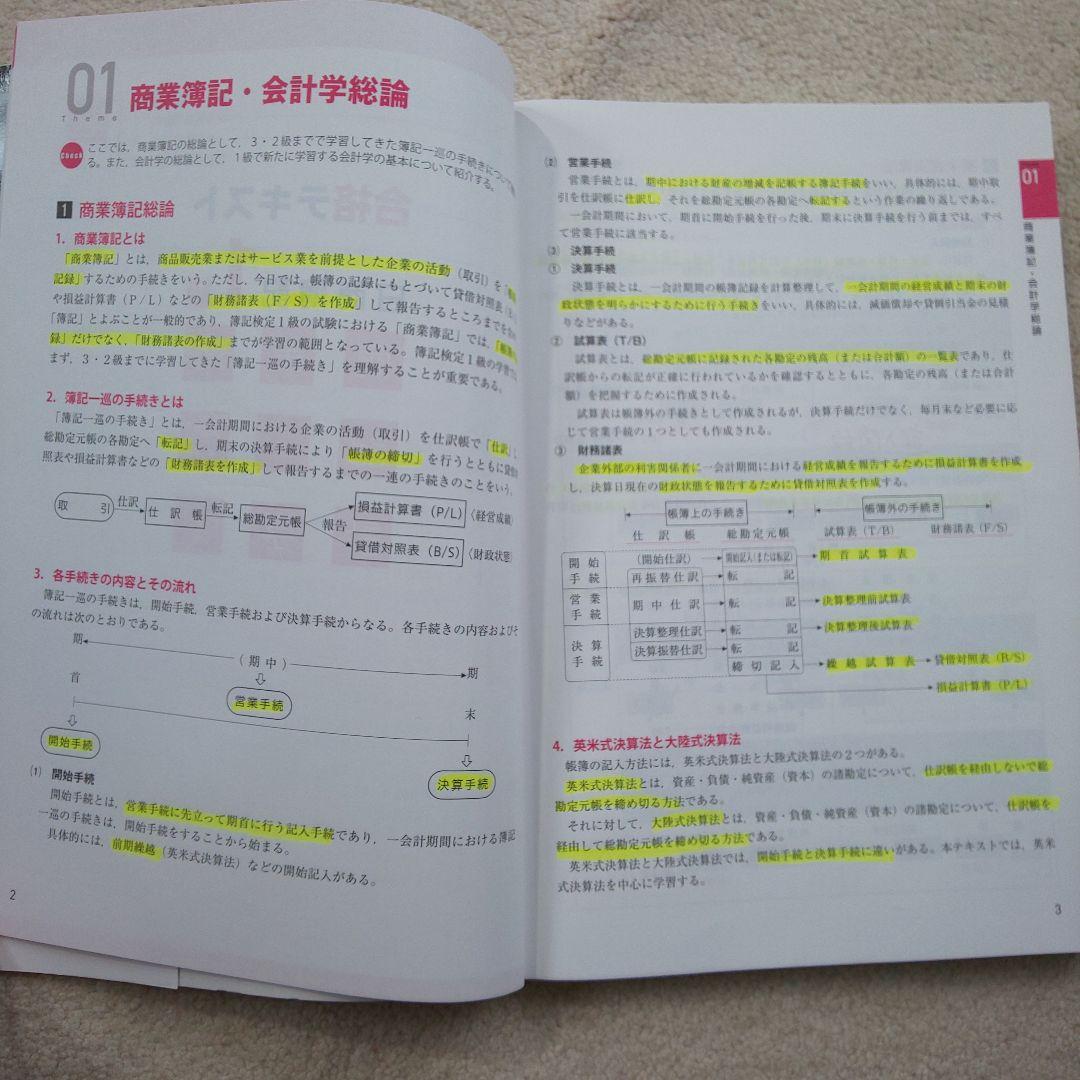 01
Theme
商業簿記・会計学総論
Check
ここでは，商業簿記の総論として，3・2級までで学習してきた簿記一巡の手続きについて
る。また，会計学の総論として，1級で新たに学習する会計学の基本について紹介する。
1 商業簿記総論
1．商業簿記とは
「商業簿記」とは，商品販売業またはサービス業を前提とした企業の活動（取引）を「
記録」するための手続きをいう。ただし，今日では，帳簿の記録にもとづいて貸借対照表（
や損益計算書（P/L）などの「財務諸表（F/S）を作成」して報告するところまでを
「簿記」とよぶことが一般的であり，簿記検定1級の試験における「商業簿記」では，「
録」だけでなく，「財務諸表の作成」までが学習の範囲となっている。簿記検定1級の学習
まず，3・2級までに学習してきた「簿記一巡の手続き」を理解することが重要である。
2．簿記一巡の手続きとは
「簿記一巡の手続き」とは，一会計期間における企業の活動（取引）を仕訳帳で「仕訳」
総勘定元帳の各勘定へ「転記」し，期末の決算手続により「帳簿の締切」を行うとともに貸借
照表や損益計算書などの「財務諸表を作成」して報告するまでの一連の手続きのことをいう。
取引 仕訳 仕訳帳 転記 総勘定元帳 報告 損益計算書（P/L）〈経営成績〉
貸借対照表（B/S）〈財政状態〉
3．各手続きの内容とその流れ
簿記一巡の手続きは，開始手続，営業手続および決算手続からなる。各手続きの内容およびそ
の流れは次のとおりである。
期首 （期中） 期末
営業手続
開始手続
決算手続
(1) 開始手続
開始手続とは，営業手続に先立って期首に行う記入手続であり，一会計期間における簿記
一巡の手続きは，開始手続をすることから始まる。
具体的には，前期繰越（英米式決算法）などの開始記入がある。
2
(2) 営業手続
営業手続とは，期中における財産の増減を記帳する簿記手続をいい，具体的には，期中取
引を仕訳帳に仕訳し，それを総勘定元帳の各勘定へ転記するという作業の繰り返しである。
一会計期間において，期首に開始手続を行った後，期末に決算手続を行う前までは，すべ
て営業手続に該当する。
(3) 決算手続
① 決算手続
決算手続とは，一会計期間の帳簿記録を計算整理して，一会計期間の経営成績と期末の財
政状態を明らかにするために行う手続きをいい，具体的には，減価償却や貸倒引当金の見積
りなどがある。
② 試算表（T/B）
試算表とは，総勘定元帳に記録された各勘定の残高（または合計額）の一覧表であり，仕
訳帳からの転記が正確に行われているかを確認するとともに，各勘定の残高（または合計
額）を把握するために作成される。
試算表は帳簿外の手続きとして作成されるが，決算手続だけでなく，毎月末など必要に応
じて営業手続の1つとしても作成される。
③ 財務諸表
企業外部の利害関係者に一会計期間における経営成績を報告するために損益計算書を作成
し，決算日現在の財政状態を報告するために貸借対照表を作成する。
帳簿上の手続き 帳簿外の手続き
仕訳帳 総勘定元帳 試算表（T/B） 財務諸表（F/S）
開始手続 （開始仕訳） 開始記入（または転記） 期首試算表
再振替仕訳 転記
営業手続 期中仕訳 転記 決算整理前試算表
決算手続 決算整理仕訳 転記 決算整理後試算表
決算振替仕訳 転記
締切記入 繰越試算表 貸借対照表（B/S）
損益計算書（P/L）
4．英米式決算法と大陸式決算法
帳簿の記入方法には，英米式決算法と大陸式決算法の2つがある。
英米式決算法とは，資産・負債・純資産（資本）の諸勘定について，仕訳帳を経由しないで総
勘定元帳を締め切る方法である。
それに対して，大陸式決算法とは，資産・負債・純資産（資本）の諸勘定について，仕訳帳を
経由して総勘定元帳を締め切る方法である。
英米式決算法と大陸式決算法では，開始手続と決算手続に違いがある。本テキストでは，英米
式決算法を中心に学習する。
01
商業簿記・会計学総論
3